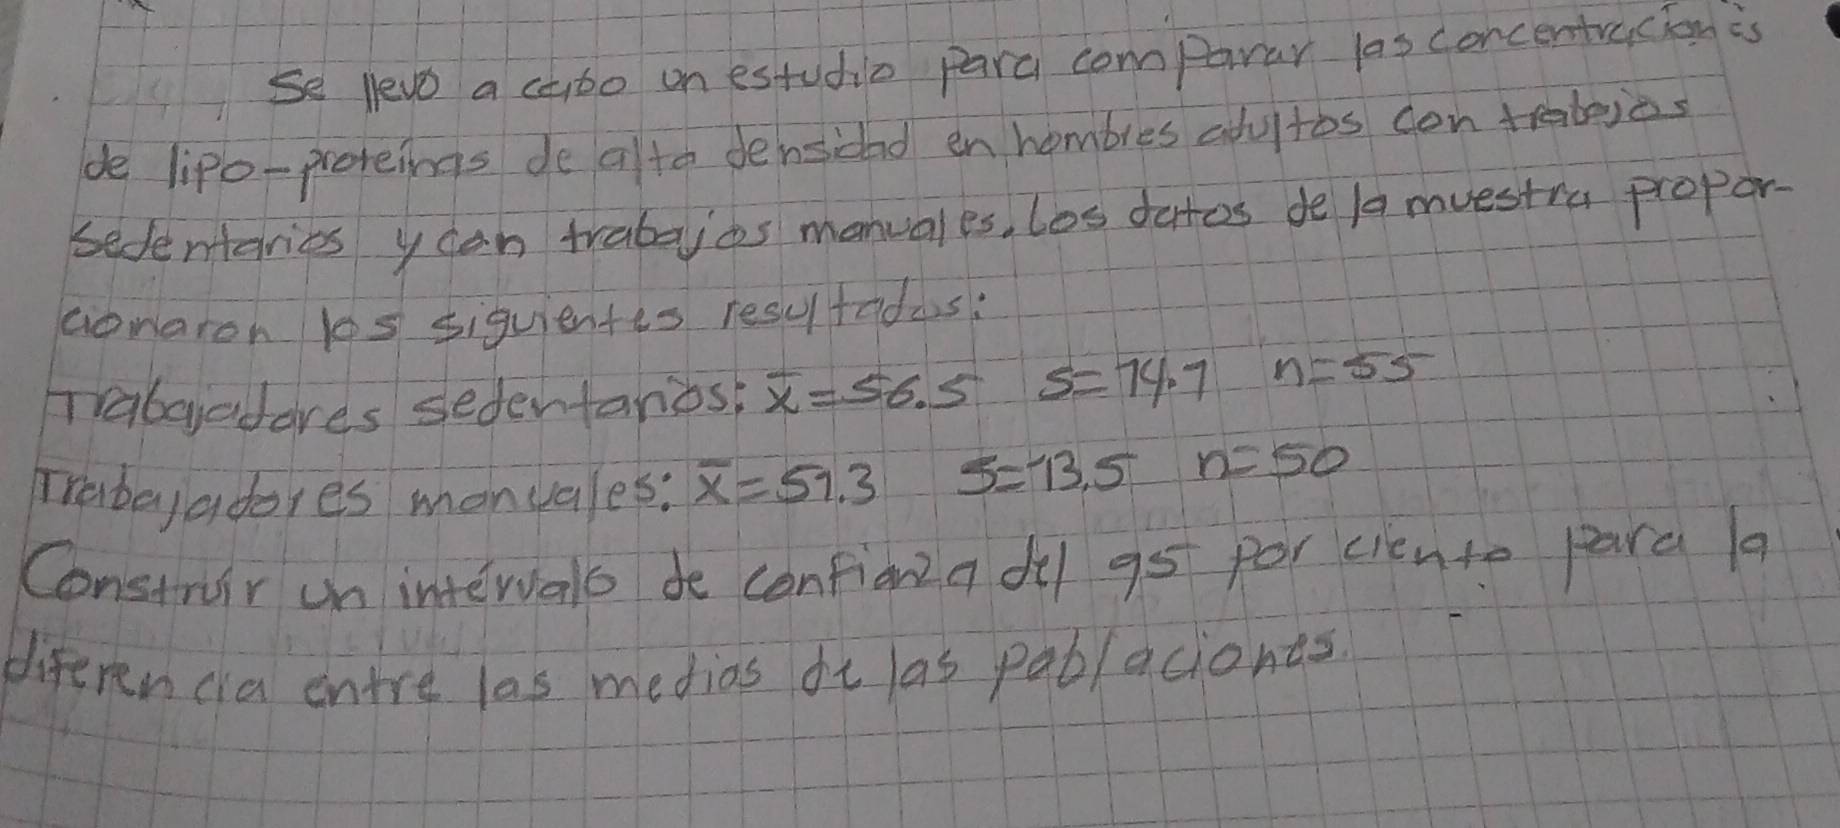 Se llevo a cabo un estudio para comparar las concentraciones
de lipo-proteinas de alta densidad en hombres adultos con trabajos
sedentarios y con trabajos manuales. Los datos de la muestra propor-
cionaron los siguientes resultados:
Trabajadores sedentarios: x̄=56.5 S=14.1 n=55
Trabajadores manuales: x̄=51.3 S=13.5 n=50
Construir un intérvalo de confianza del 95 por ciento para la
diferencia entre las medias de las poblaciones.